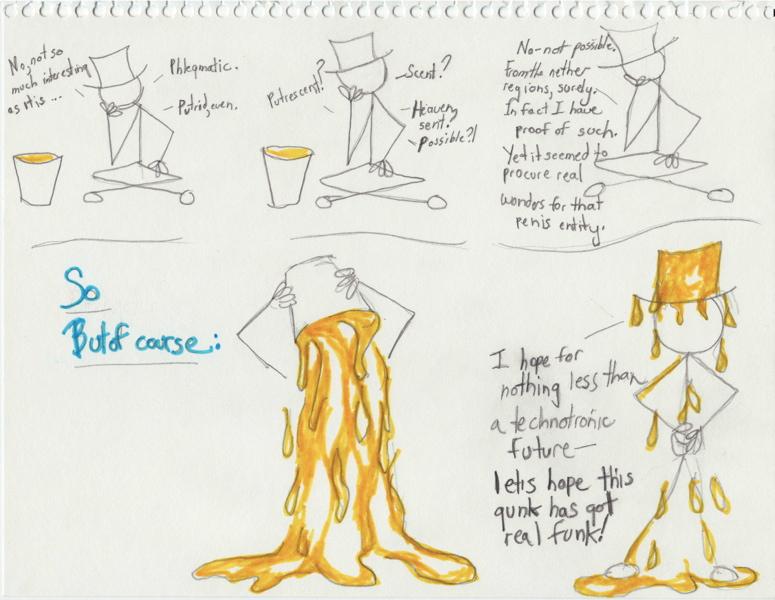 No, not so
much interesting
as it is ...
Phlegmatic.
Putrid, even.
Putrescent?
Scent?
Heaven
sent?
Possible?!
No-not possible.
From the nether
regions, surely.
In fact I have
proof of such.
Yet it seemed to
procure real
wonders for that
penis entity.
So
But of course:
I hope for
nothing less than
a technotronic
future—
let's hope this
gunk has got
real funk!